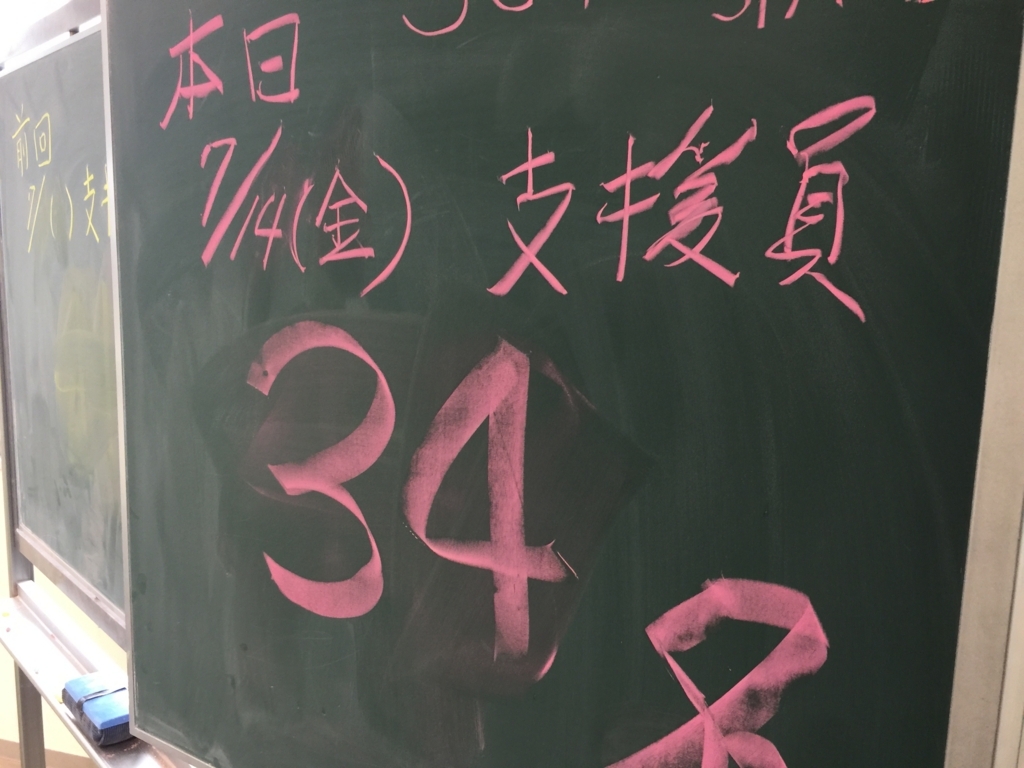 本日
7/14(金) 支援員
34
前回
7/( )支